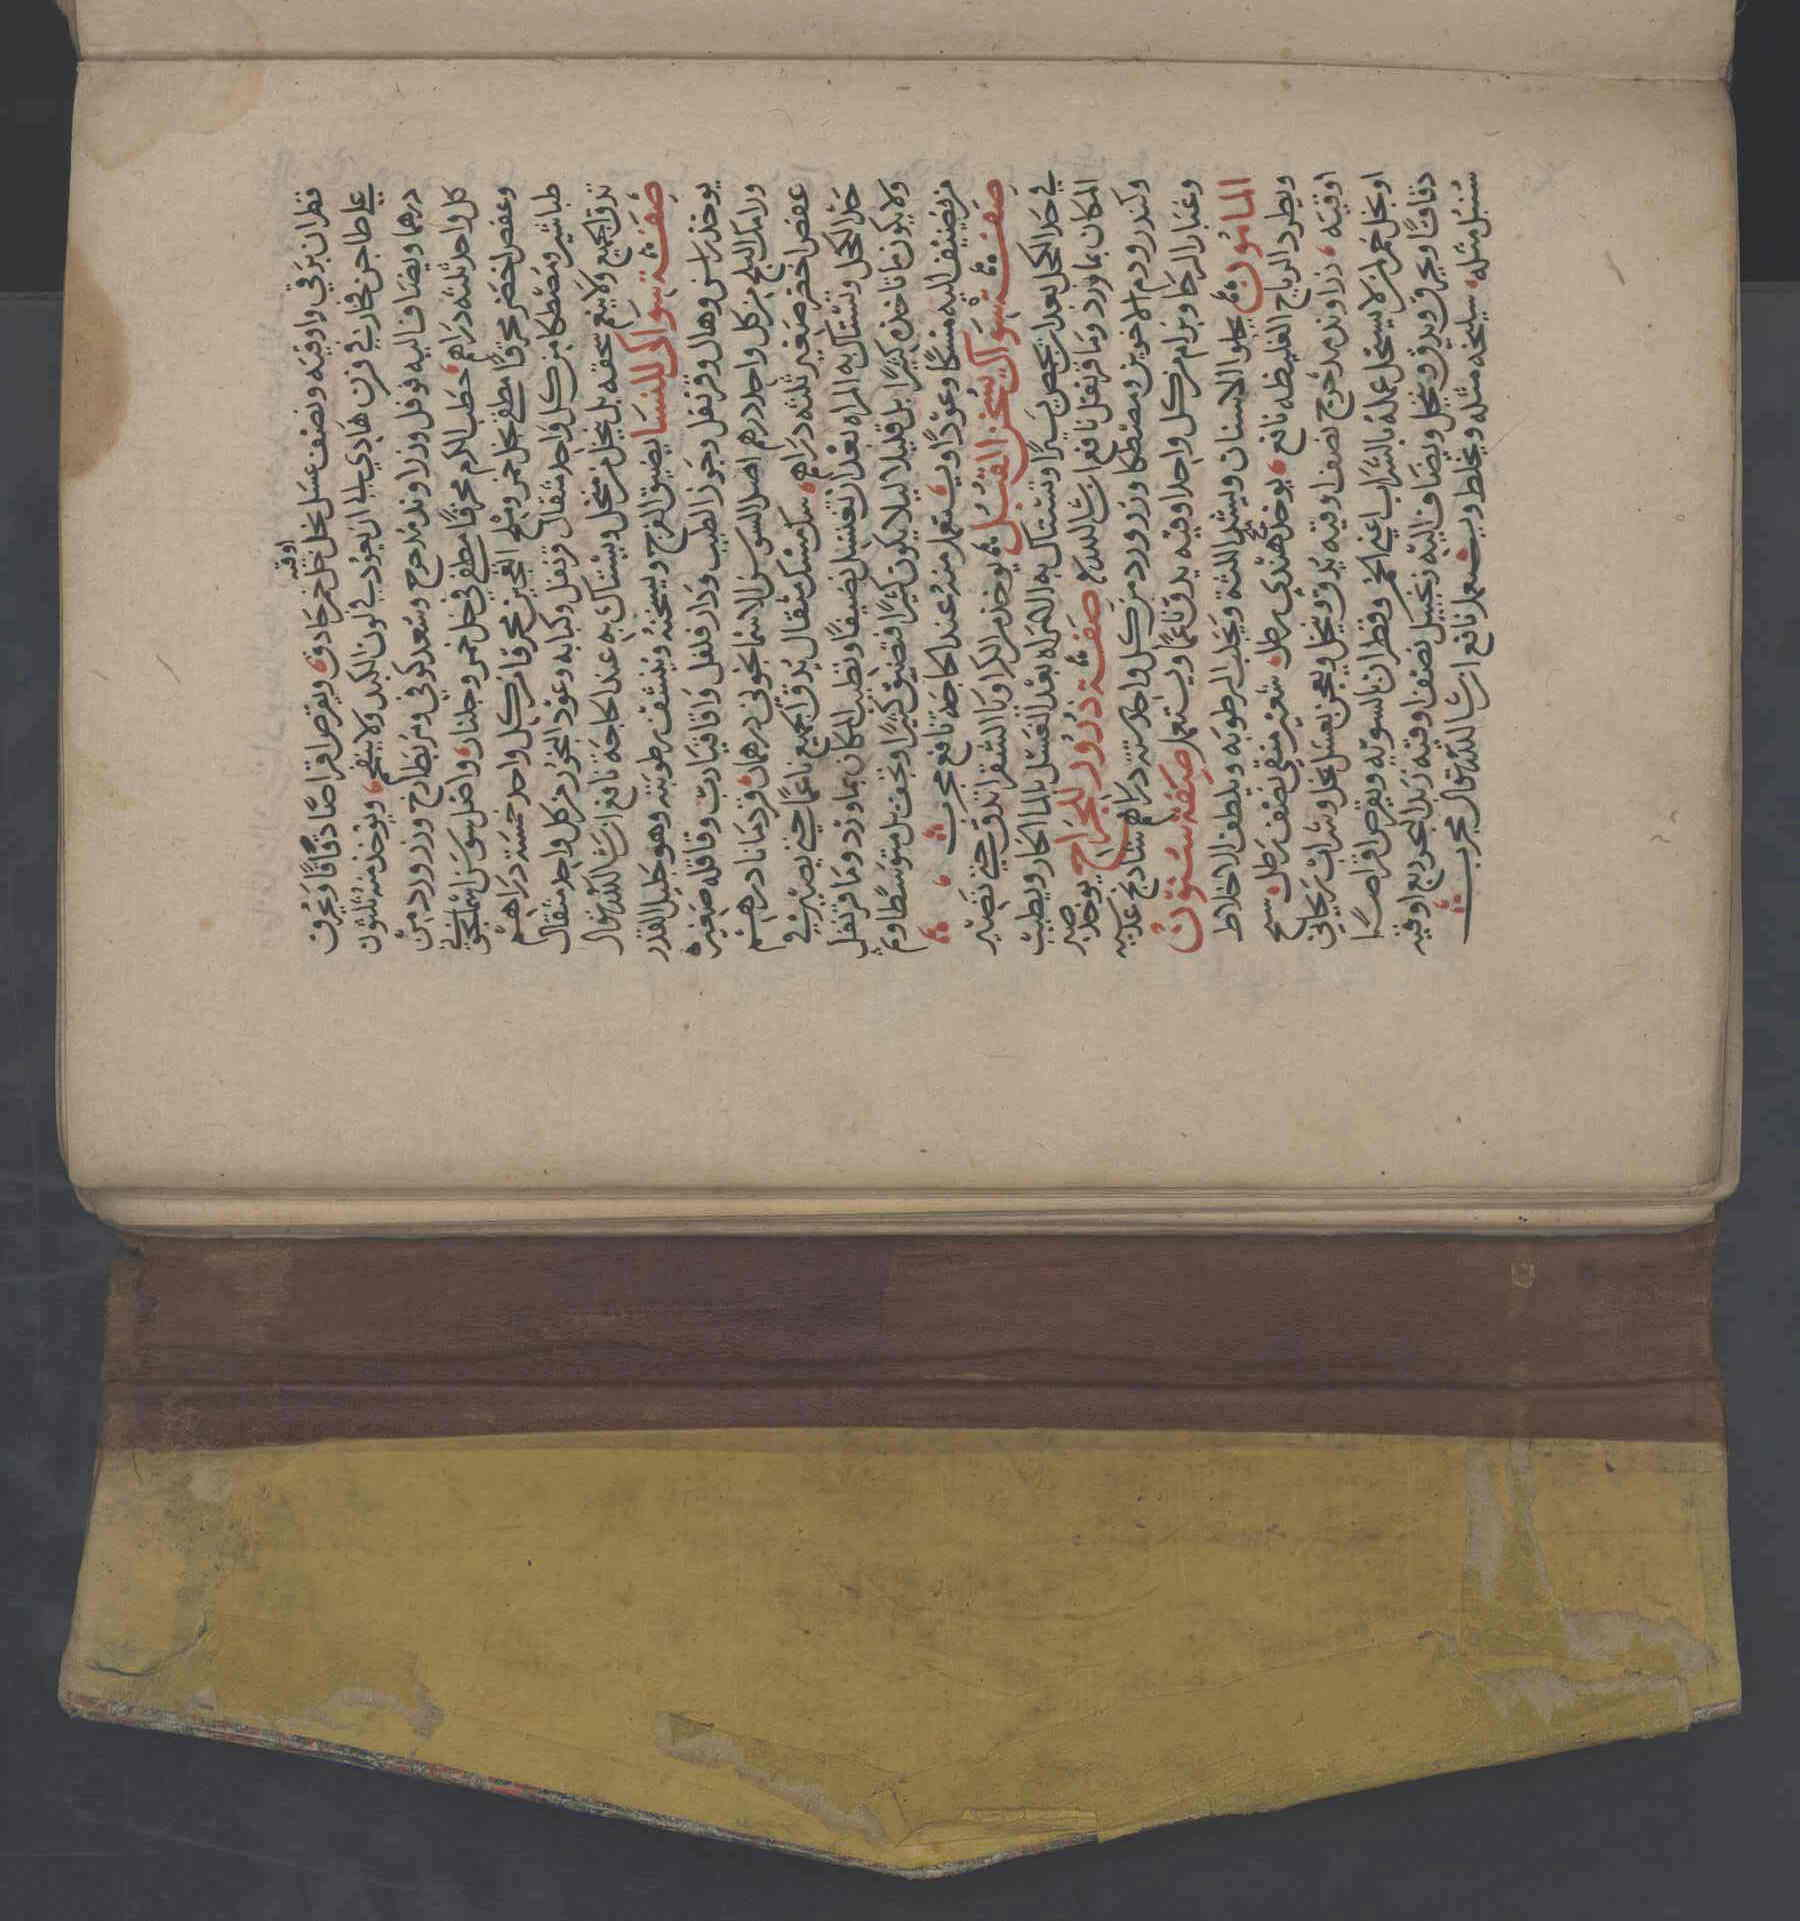 قطران برقي واوقيه ونصف عسل نحل خل خمر حاذق ويقرص اقراصًا دقاقًا ويحرق
اوقيه
علي طاجن فخار في فرن هادي الي ان يعود في لون الكبد ولا يتفحم ويوخذ منه ثلثون
درهما ويضاف اليه فوفل وزراوند مدحرج وسعد كوفي وبزبطارخ وزر ورد من
كل واحد ثلثه دراهم حطب الكرم محرقًا مطفي في خل خمر وجلنار واصل سوسن اسمانجوني
وعفص اخضر محرقًا مطفي بخل خمر وملح العجين محرقا من كل واحد خمسة دراهم
طباشير ومصطكا من كل واحد مثقال قرنفل وكبابه وعود البخور من كل واحد مثقال
تدق الجميع ولا ينعم سحقه بل ينخل من منخل ويستاك به عند الحاجة نافع ان شا الله تعالى
صفة سواك للنسا يضيق الفرج ويسخنه وينشف رطوبته وهو جليل القدر
يوخذ راسن وهال وقرنفل وجوز الطيب ودار فلفل واقاقيا ورب وقاقله صغيره
ورامك البلح من كل واحد درهم اصل السوسن الاسمانجوني درهمان قردمانا درهم
عفص اخضر صغير ثلثه دراهم سك مسك مثقال يدق الجميع ناعمًا حتي يصير في
حد الكحل وتستاك به المراه بعد ان تغتسل نضيفًا وتطيب المكان بماورد وما قرنفل
ولا يكون ما تاخذه كثيرًا بل قليلا ليلا يكون كثيرًا فتضيق كثيرًا وتجف بل متوسطا وثم
من يضيف اليه مسكًا وعودًا ويستعمل منه عند الحاجة نافع مجرب
صفة سواك يسخن القبل يوخذ من الكراويا الشقرا تدق حتي تصير
في حد الكحل بعد ان يحمص يسيرًا وتستاك به المراه بعد الغسل بالما الحار ويطيب
المكان بماورد وما قرنفل نافع ان شا الله تع صفة ذرور للجراح يوخذ صبر
وكندر ودم الاخوين ومصطكا وزر ورد من كل واحد ستة دراهم شادنج عدسيه
وغبار الرحا وبرام من كل واحد اوقيه يدق ناعمًا ويستعمل صفة سنون
المامون يجلوا الاسنان ويشد اللثة ويجلب الرطوبه ويلطف الاخلاط
ويطرد الرياح الغليظه نافع يوخذ ملح هندي رطل شعير منقي نصف رطل شيح
اوقيه زراوند مدحرج نصف اوقيه يدق وينخل ويعجن بعسل نحل وشراب ريحاني
او بخل خمر لمن لا يستحل عمله بالشراب اعني الخمر وقطران بالسويه ويقرص اقراصًا
دقاقًا ويحرق ويدق وينخل ويضاف اليه زنجبيل نصف اوقيه زبد البحر ربع اوقيه
سنبل مثله سليخه مثله ويخلط ويستعمل نافع ان شا الله تعالى مجرب